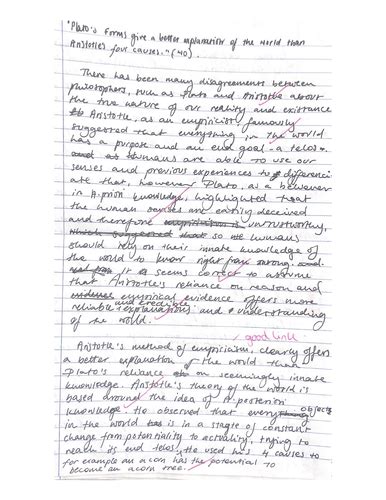 "Plato's Forms give a better explanation of the world than
Aristotle's four causes." (40)
There has been many disagreements between
philosophers, such as Plato and Aristotle about
the true nature of our reality and existance
Aristotle, as an empiricist, famously
suggested that everything in the world
has a purpose and an end goal - a telos.
and as humans are able to use our
senses and previous experiences to differenci
ate that, however Plato, as a believer
in A priori knowledge, highlighted that
the human senses are entirely deceived
and therefore empiricism is untrustworthy,
which suggested that so humans
should rely on their innate knowledge of
the world to know right from wrong. and
It seems correct to assume
that Aristotle's reliance on reason and
evidence empirical evidence offers more
reliable and credible explanations and understanding
of the world.
good link
Aristotle's method of empiricism, clearly offers
a better explanation of the world than
Plato's reliance on seemingly innate
knowledge. Aristotle's theory of the world is
based around the idea of A posteriori
knowledge. He observed that every thing objects
in the world is in a stagte of constant
change from potentiality to actuality, trying to
reach its end telos, He used his 4 causes to
for example an acorn has the potential to
become an acorn tree.